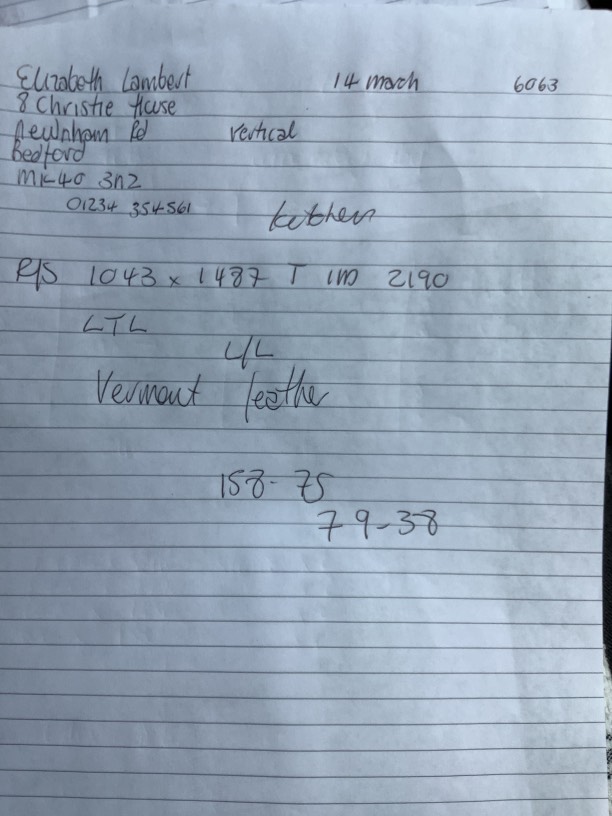 Elizabeth Lambert 14 march 6063
8 Christie House
Newnham Rd vertical
Bedford
MK40 3n2
01234 354561
kitchen
R/S 1043 x 1487 T 2190
LTL
L/L
Vermont feather
158-75
79-38